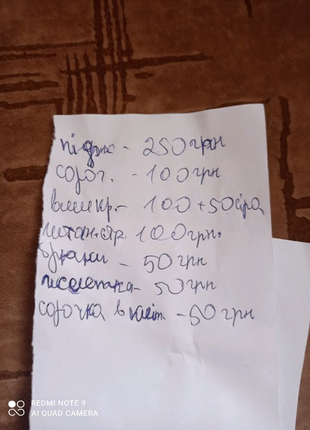 підж - 250грн
сороч. - 100грн
вишкр.- 100+50сіра
штан.стр. 100грн.
брюки - 50грн
жилетка- 50грн
сорочка в кліт -50грн
REDMI NOTE 9
AI QUAD CAMERA